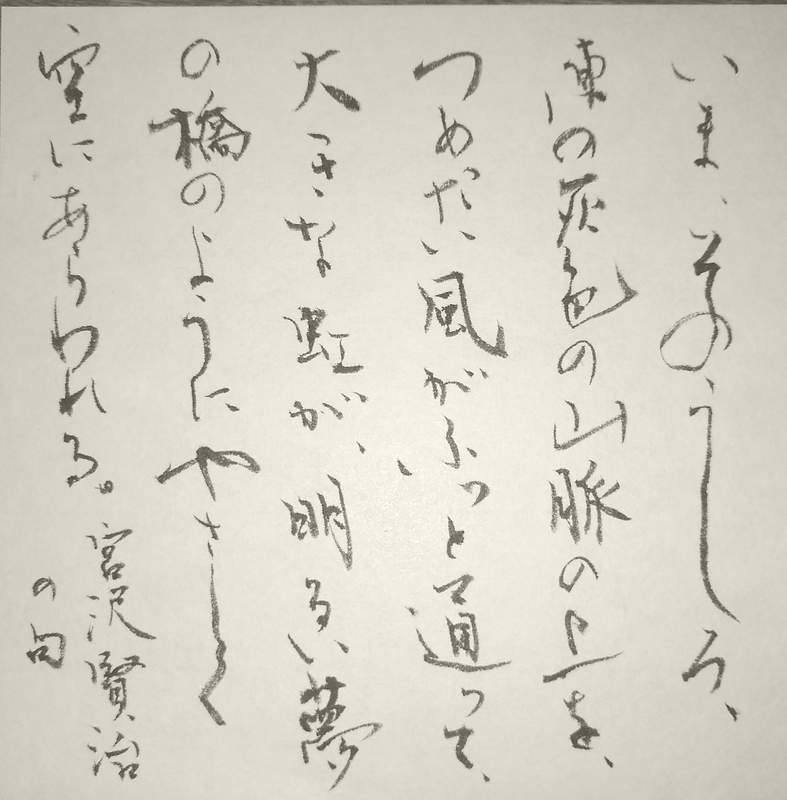 いま、そのうしろ、
東の灰色の山脈の上を、
つめたい風がふっと通って、
大きな虹が、明るい夢
の橋のようにやさしく
空にあらわれる。
宮沢賢治
の句